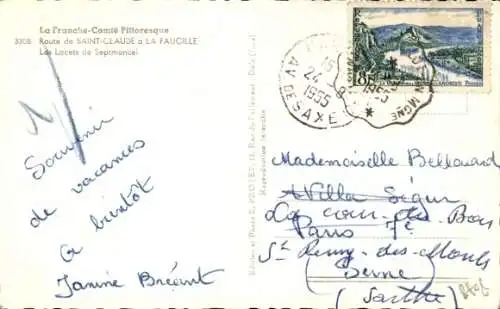 La Franche-Comté Pittoresque
3308 Route de SAINT-CLAUDE à LA FAUCILLE
Les Lacets de Septmoncel
Souvenir
de vacances
a bientôt
Janine Bréant
15
24
1955
AV DE SAXE
8F
Mademoiselle Bellouard
Villa Ségur
La cour du Bois
Paris 7e
St Remy-des-Monts
(Sarthe)